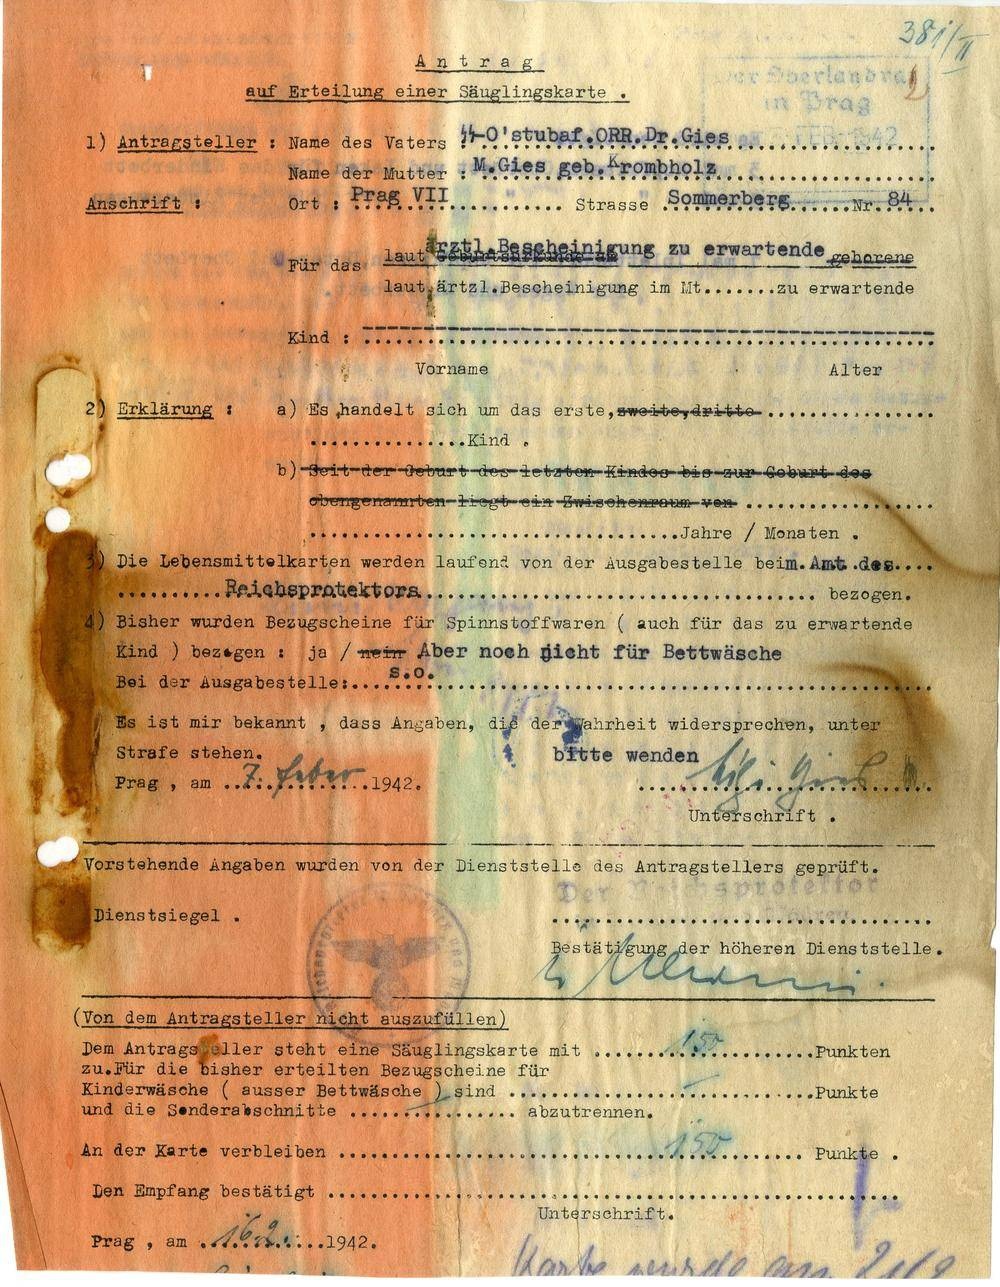 381/II
Antrag
auf Erteilung einer Säuglingskarte .
Der Oberlandrat
in Prag
FEB. 1942
2
1) Antragsteller : Name des Vaters ᛋᛋ-O'stubaf.ORR.Dr.Gies
Name der Mutter : M.Gies geb.Krombholz
Anschrift : Ort : Prag VII Strasse Sommerberg Nr. 84
ärztl.Bescheinigung zu erwartende
Für das laut Geburtsurkunde am geborene
laut ärtzl.Bescheinigung im Mt.......zu erwartende
Kind :
Vorname Alter
2) Erklärung : a) Es handelt sich um das erste,zweite,dritte
Kind .
b) Seit der Geburt des letzten Kindes bis zur Geburt des
obengenannten liegt ein Zwischenraum von
Jahre / Monaten .
3) Die Lebensmittelkarten werden laufend von der Ausgabestelle beim.Amt.des....
Reichsprotektors bezogen.
4) Bisher wurden Bezugscheine für Spinnstoffwaren ( auch für das zu erwartende
Kind ) bezogen : ja / nein Aber noch nicht für Bettwäsche
Bei der Ausgabestelle: s.o.
Es ist mir bekannt , dass Angaben, die der Wahrheit widersprechen, unter
Strafe stehen. bitte wenden
Prag , am 7. feber 1942. Gies
Unterschrift .
Vorstehende Angaben wurden von der Dienststelle des Antragstellers geprüft.
Der Reichsprotektor
Dienstsiegel .
Bestätigung der höheren Dienststelle.
(Von dem Antragsteller nicht auszufüllen)
Dem Antragsteller steht eine Säuglingskarte mit 150 Punkten
zu.Für die bisher erteilten Bezugscheine für
Kinderwäsche ( ausser Bettwäsche ) sind Punkte
und die Sonderabschnitte abzutrennen.
An der Karte verbleiben 150 Punkte .
Den Empfang bestätigt
Unterschrift.
Prag , am 16.2. 1942.
Karte wurde am